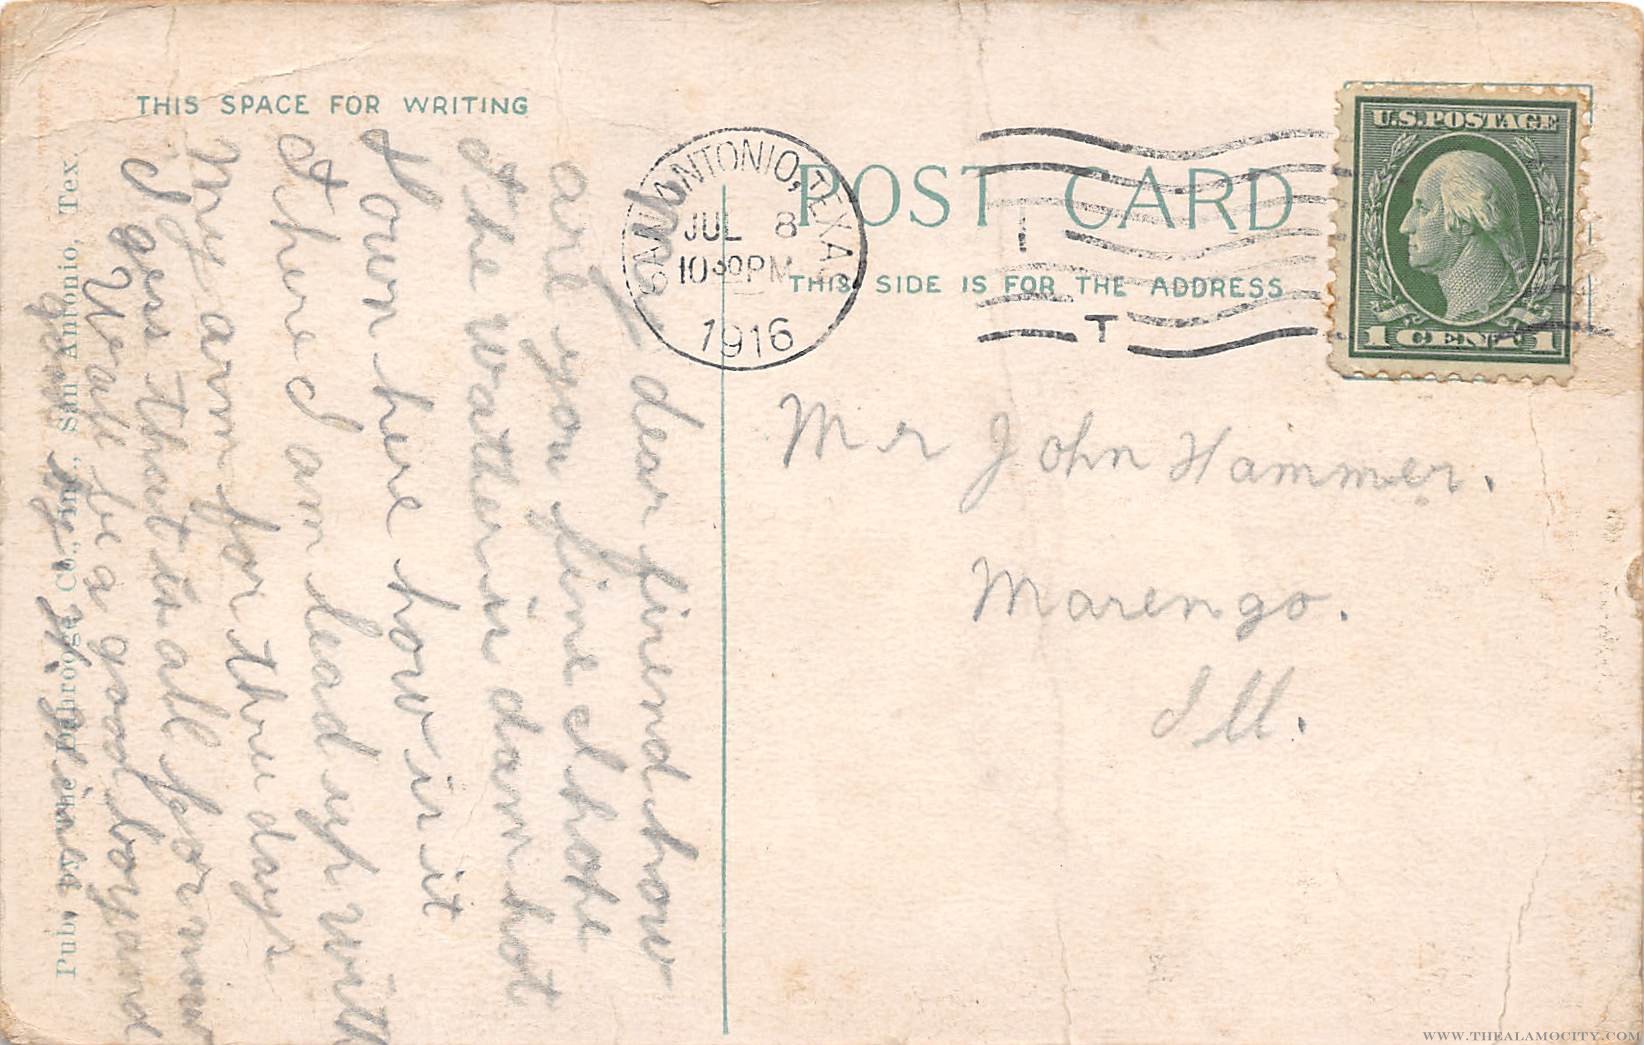 THIS SPACE FOR WRITING
My dear friend how
are you fine I hope
the wather is dam hot
down here how is it
there I am lead up with
My arm for thre days
I gess that is all for now
Weall be a good boy and
good by
Pub. by The Dubrooge Co., Inc., San Antonio, Tex.
SAN ANTONIO, TEXAS
JUL 8
10 30 PM
1916
POST CARD
THIS SIDE IS FOR THE ADDRESS
U.S. POSTAGE
1 CENT 1
Mr John Hammer.
Marengo.
Ill.
WWW.THEALAMOCITY.COM